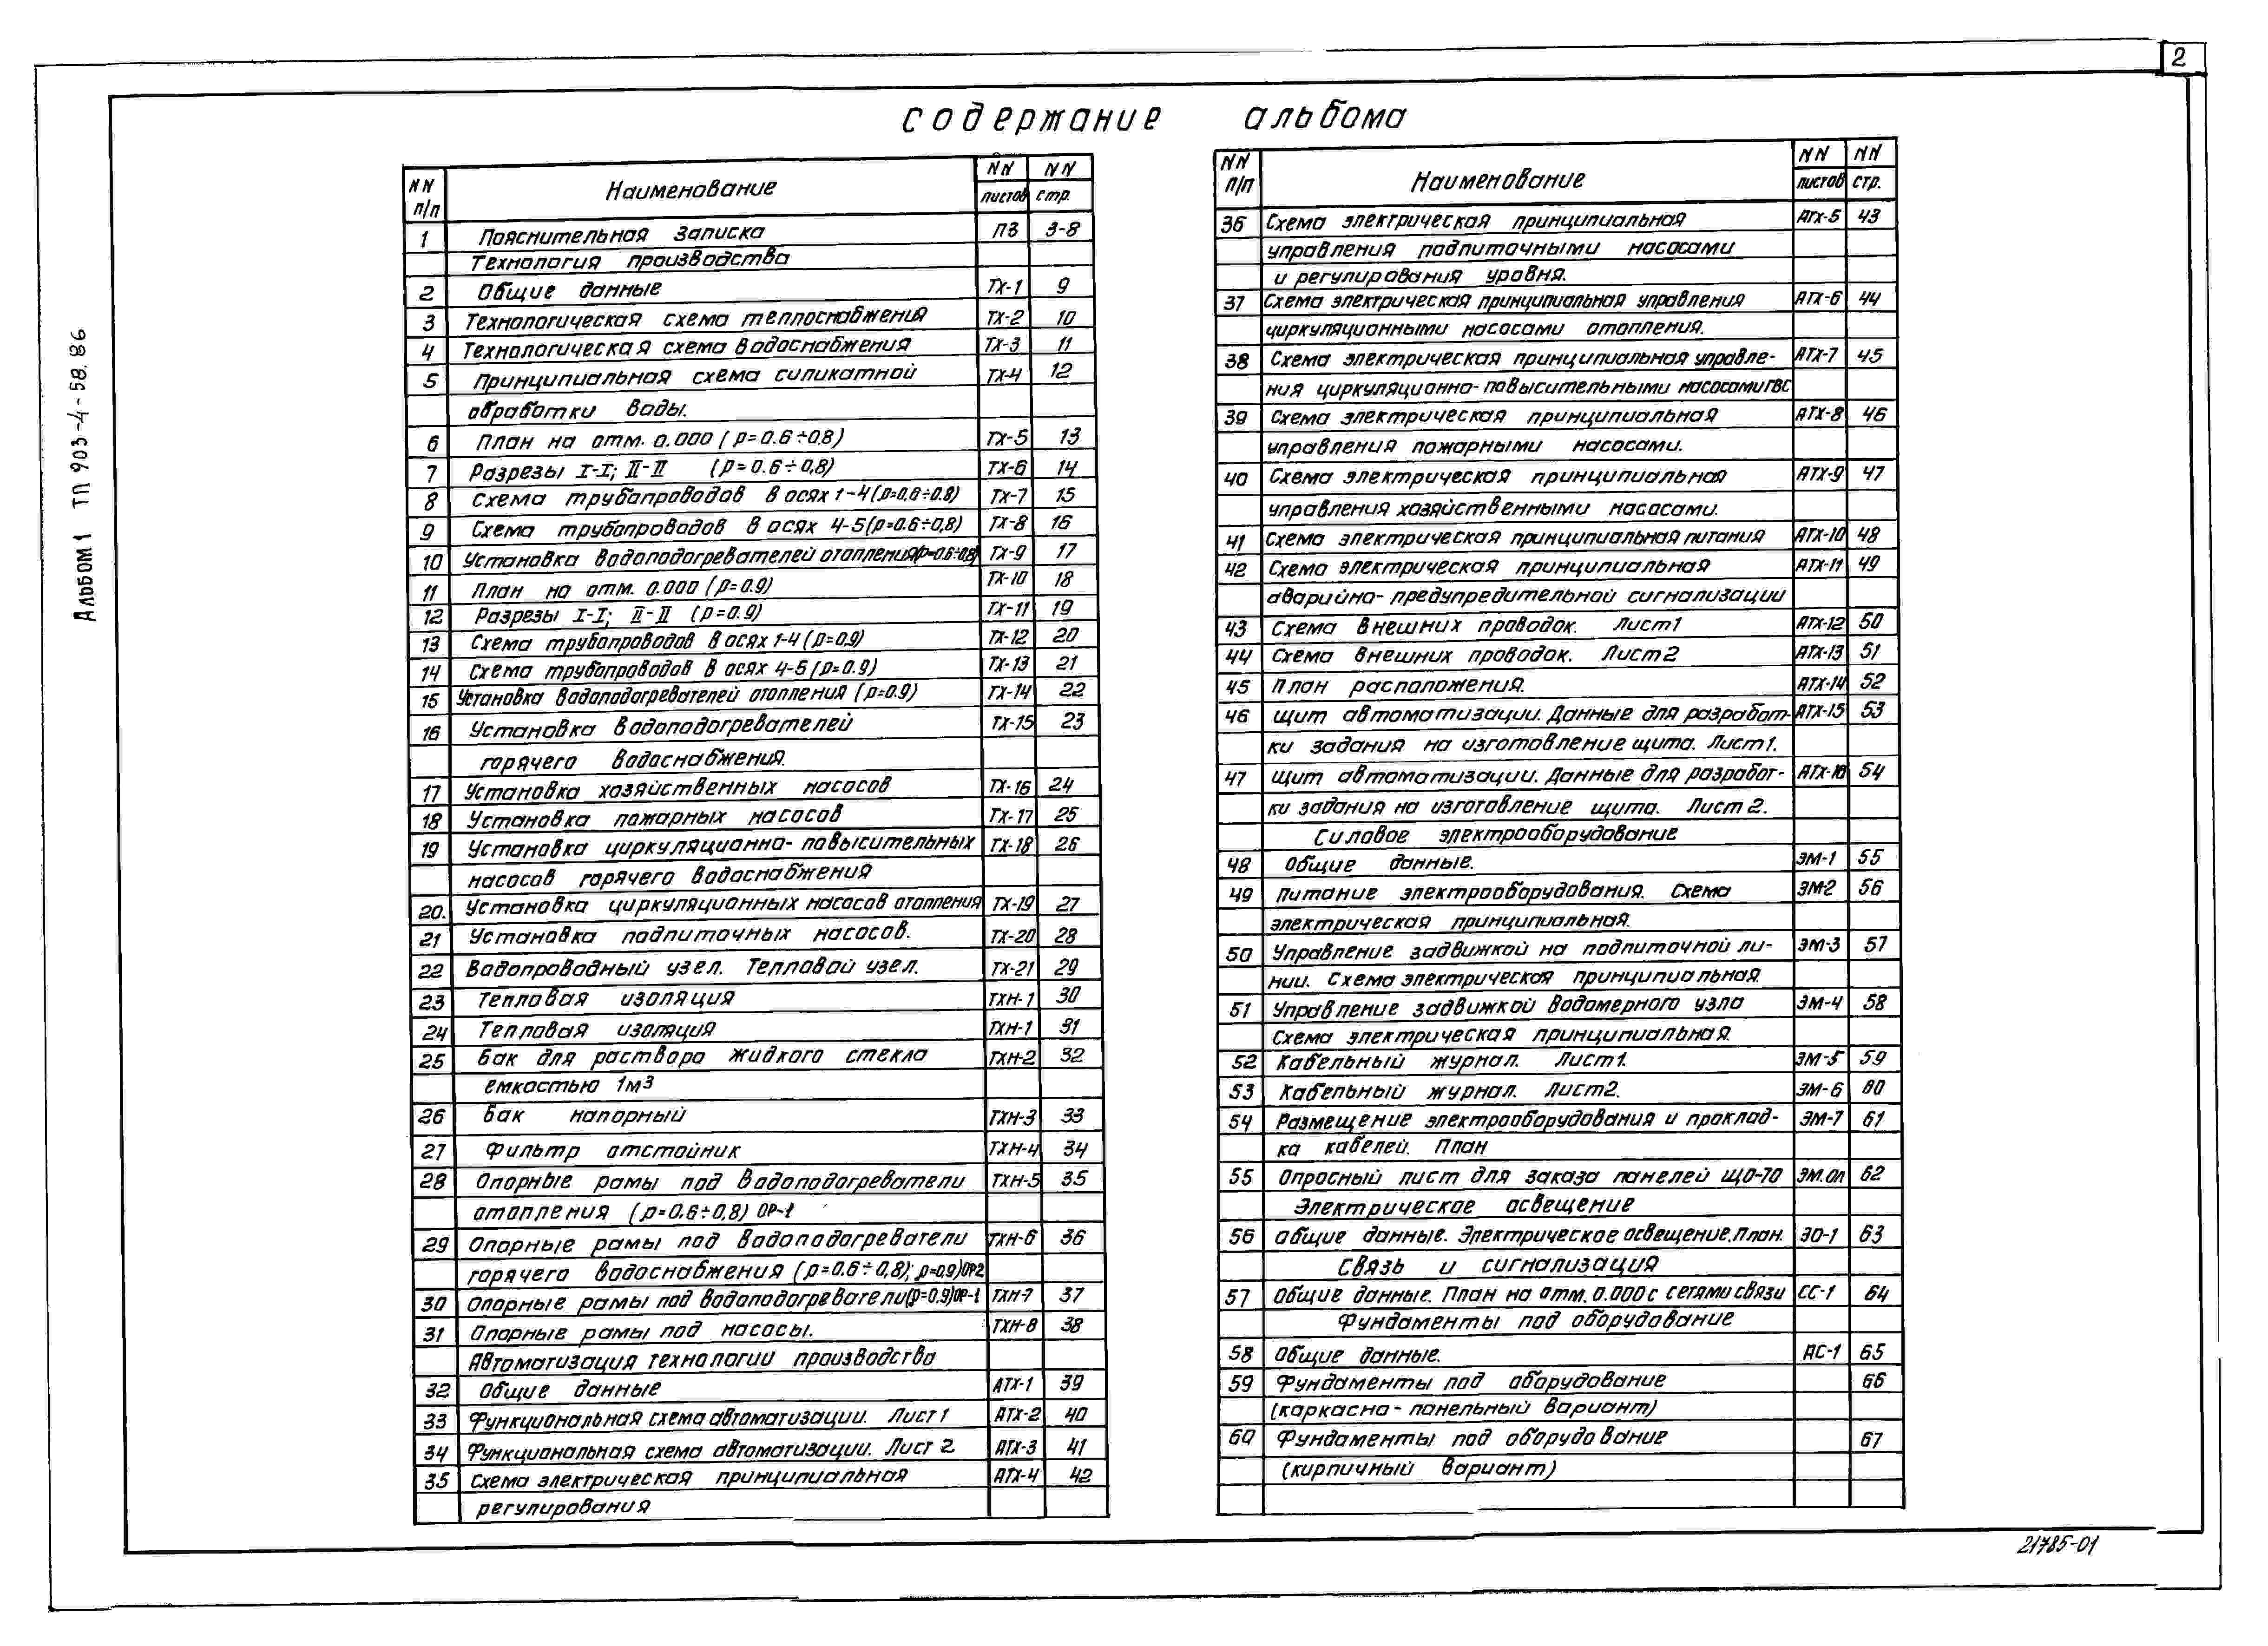 2
содержание альбома
Альбом 1 ТП 903-4-58.86
NN п/п Наименование NN листов NN стр.
1 Пояснительная записка ПЗ 3-8
Технология производства
2 Общие данные ТХ-1 9
3 Технологическая схема теплоснабжения ТХ-2 10
4 Технологическая схема водоснабжения ТХ-3 11
5 Принципиальная схема силикатной ТХ-4 12
обработки воды.
6 План на отм. 0.000 (р=0.6÷0.8) ТХ-5 13
7 Разрезы I-I; II-II (р=0.6÷0,8) ТХ-6 14
8 Схема трубопроводов в осях 1-4 (р=0,6÷0.8) ТХ-7 15
9 Схема трубопроводов в осях 4-5 (р=0.6÷0,8) ТХ-8 16
10 Установка водоподогревателей отопления (р=0.6÷0,8) ТХ-9 17
11 План на отм. 0.000 (р=0.9) ТХ-10 18
12 Разрезы I-I; II-II (р=0.9) ТХ-11 19
13 Схема трубопроводов в осях 1-4 (р=0,9) ТХ-12 20
14 Схема трубопроводов в осях 4-5 (р=0.9) ТХ-13 21
15 Установка водоподогревателей отопления (р=0.9) ТХ-14 22
16 Установка водоподогревателей ТХ-15 23
горячего водоснабжения.
17 Установка хозяйственных насосов ТХ-16 24
18 Установка пожарных насосов ТХ-17 25
19 Установка циркуляционно-повысительных ТХ-18 26
насосов горячего водоснабжения
20. Установка циркуляционных насосов отопления ТХ-19 27
21 Установка подпиточных насосов. ТХ-20 28
22 Водопроводный узел. Тепловой узел. ТХ-21 29
23 Тепловая изоляция ТХН-1 30
24 Тепловая изоляция ТХН-1 31
25 Бак для раствора жидкого стекла ТХН-2 32
емкостью 1м³
26 Бак напорный ТХН-3 33
27 Фильтр отстойник ТХН-4 34
28 Опорные рамы под водоподогреватели ТХН-5 35
отопления (р=0.6÷0,8) ОР-1
29 Опорные рамы под водоподогреватели ТХН-6 36
горячего водоснабжения (р=0.6÷0,8); р=0,9) ОР2
30 Опорные рамы под водоподогреватели (р=0.9) ОР-1 ТХН-7 37
31 Опорные рамы под насосы. ТХН-8 38
Автоматизация технологии производства
32 Общие данные АТХ-1 39
33 Функциональная схема автоматизации. Лист 1 АТХ-2 40
34 Функциональная схема автоматизации. Лист 2 АТХ-3 41
35 Схема электрическая принципиальная АТХ-4 42
регулирования
NN п/п Наименование NN листов NN стр.
36 Схема электрическая принципиальная АТХ-5 43
управления подпиточными насосами
и регулирования уровня.
37 Схема электрическая принципиальная управления АТХ-6 44
циркуляционными насосами отопления.
38 Схема электрическая принципиальная управле- АТХ-7 45
ния циркуляционно-повысительными насосами ГВС
39 Схема электрическая принципиальная АТХ-8 46
управления пожарными насосами.
40 Схема электрическая принципиальная АТХ-9 47
управления хозяйственными насосами.
41 Схема электрическая принципиальная питания АТХ-10 48
42 Схема электрическая принципиальная АТХ-11 49
аварийно-предупредительной сигнализации
43 Схема внешних проводок. Лист 1 АТХ-12 50
44 Схема внешних проводок. Лист 2 АТХ-13 51
45 План расположения. АТХ-14 52
46 Щит автоматизации. Данные для разработ- АТХ-15 53
ки задания на изготовление щита. Лист 1.
47 Щит автоматизации. Данные для разработ- АТХ-16 54
ки задания на изготовление щита. Лист 2.
Силовое электрооборудование
48 Общие данные. ЭМ-1 55
49 Питание электрооборудования. Схема ЭМ-2 56
электрическая принципиальная.
50 Управление задвижкой на подпиточной ли- ЭМ-3 57
нии. Схема электрическая принципиальная.
51 Управление задвижкой водомерного узла ЭМ-4 58
Схема электрическая принципиальная.
52 Кабельный журнал. Лист 1. ЭМ-5 59
53 Кабельный журнал. Лист 2. ЭМ-6 60
54 Размещение электрооборудования и проклад- ЭМ-7 61
ка кабелей. План
55 Опросный лист для заказа панелей ЩО-70 ЭМ.ОЛ 62
Электрическое освещение
56 Общие данные. Электрическое освещение. План. ЭО-1 63
Связь и сигнализация
57 Общие данные. План на отм. 0.000 с сетями связи СС-1 64
Фундаменты под оборудование
58 Общие данные. АС-1 65
59 Фундаменты под оборудование 66
(каркасно-панельный вариант)
60 Фундаменты под оборудование 67
(кирпичный вариант)
21785-01